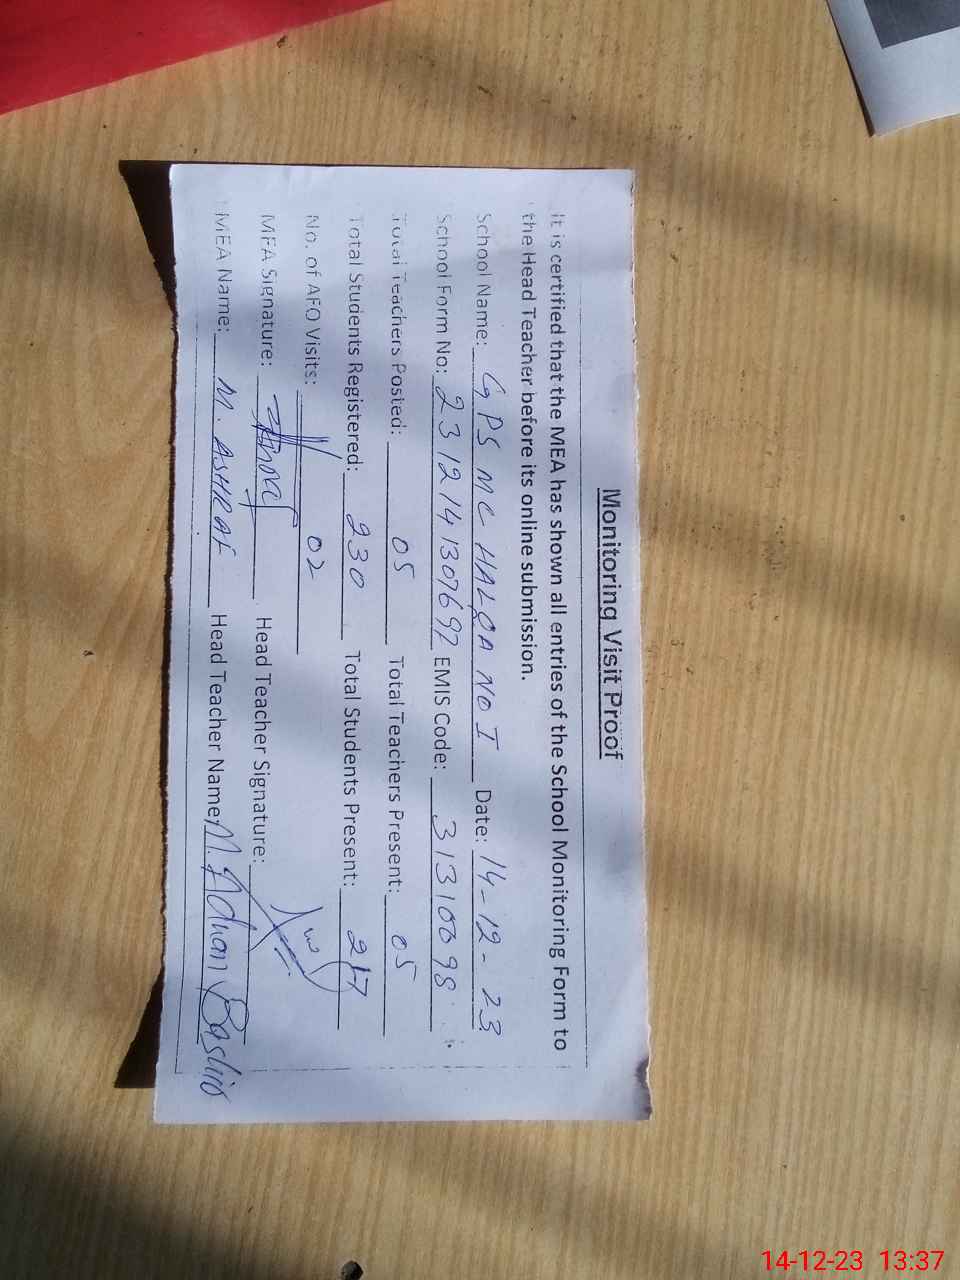 Monitoring Visit Proof
It is certified that the MEA has shown all entries of the School Monitoring Form to
the Head Teacher before its online submission.
School Name: GPS MC HALQA NO I Date: 14-12-23
School Form No: 2312141307692 EMIS Code: 31310098
Total Teachers Posted: 05 Total Teachers Present: 05
Total Students Registered: 230 Total Students Present:
No. of AEO Visits: 02
MEA Signature: Head Teacher Signature:
MEA Name: M. ASHRAF Head Teacher Name: M. Adnan Bashir
14-12-23 13:37